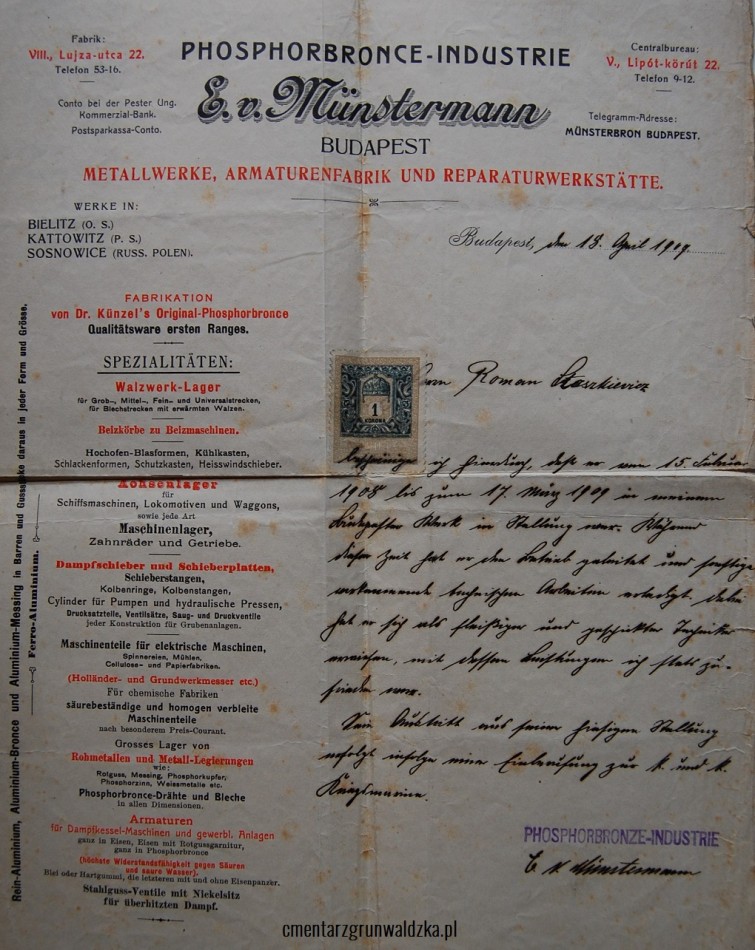 Fabrik:
VIII., Lujza-utca 22.
Telefon 53-16.
Conto bei der Pester Ung.
Kommerzial-Bank.
Postsparkassa-Conto.
PHOSPHORBRONCE-INDUSTRIE
E. v. Münstermann
BUDAPEST
Centralbureau:
V., Lipót-körút 22.
Telefon 9-12.
Telegramm-Adresse:
MÜNSTERBRON BUDAPEST.
METALLWERKE, ARMATURENFABRIK UND REPARATURWERKSTÄTTE.
WERKE IN:
BIELITZ (O. S.)
KATTOWITZ (P. S.)
SOSNOWICE (RUSS. POLEN).
Budapest, den 18. April 1909.
Rein-Aluminium, Aluminium-Bronce und Aluminium-Messing in Barren und Gussstücke daraus in jeder Form und Grösse.
Ferro-Aluminium.
FABRIKATION
von Dr. Künzel's Original-Phosphorbronce
Qualitätsware ersten Ranges.
SPEZIALITÄTEN:
Walzwerk-Lager
für Grob-, Mittel-, Fein- und Universalstrecken,
für Blechstrecken mit erwärmten Walzen.
Beizkörbe zu Beizmaschinen.
Hochofen-Blasformen, Kühlkasten,
Schlackenformen, Schutzkasten, Heisswindschieber.
Achsenlager
für
Schiffsmaschinen, Lokomotiven und Waggons,
sowie jede Art
Maschinenlager,
Zahnräder und Getriebe.
Dampfschieber und Schieberplatten,
Schieberstangen,
Kolbenringe, Kolbenstangen,
Cylinder für Pumpen und hydraulische Pressen,
Drucksatzteile, Ventilsätze, Saug- und Druckventile
jeder Konstruktion für Grubenanlagen.
Maschinenteile für elektrische Maschinen,
Spinnereien, Mühlen,
Cellulose- und Papierfabriken.
(Holländer- und Grundwerkmesser etc.)
Für chemische Fabriken
säurebeständige und homogen verbleite
Maschinenteile
nach besonderem Preis-Courant.
Grosses Lager von
Rohmetallen und Metall-Legierungen
wie:
Rotguss, Messing, Phosphorkupfer,
Phosphorzinn, Weissmetalle etc.
Phosphorbronce-Drähte und Bleche
in allen Dimensionen.
Armaturen
für Dampfkessel-Maschinen und gewerbl. Anlagen
ganz in Eisen, Eisen mit Rotgussgarnitur,
ganz in Phosphorbronce
(höchste Widerstandsfähigkeit gegen Säuren
und saure Wasser).
Blei oder Hartgummi, die letzteren mit und ohne Eisenpanzer.
Stahlguss-Ventile mit Nickelsitz
für überhitzten Dampf.
1
KORONA
Herrn Roman Staszkiewicz
bescheinige ich hierdurch, daß er vom 15. Februar
1908 bis zum 17. März 1909 in meinem
Budapester Werk in Stellung war. Während
dieser Zeit hat er den Betrieb geleitet und sonstige
vorkommende technischen Arbeiten erledigt, dabei
hat er sich als fleißiger und geschickter Techniker
erwiesen, mit dessen Leistungen ich stets zu-
frieden war.
Sein Austritt aus seiner hiesigen Stellung
erfolgt infolge einer Einberufung zur k. und k.
Kriegsmarine.
PHOSPHORBRONZE-INDUSTRIE
E v. Münstermann
cmentarzgrunwaldzka.pl